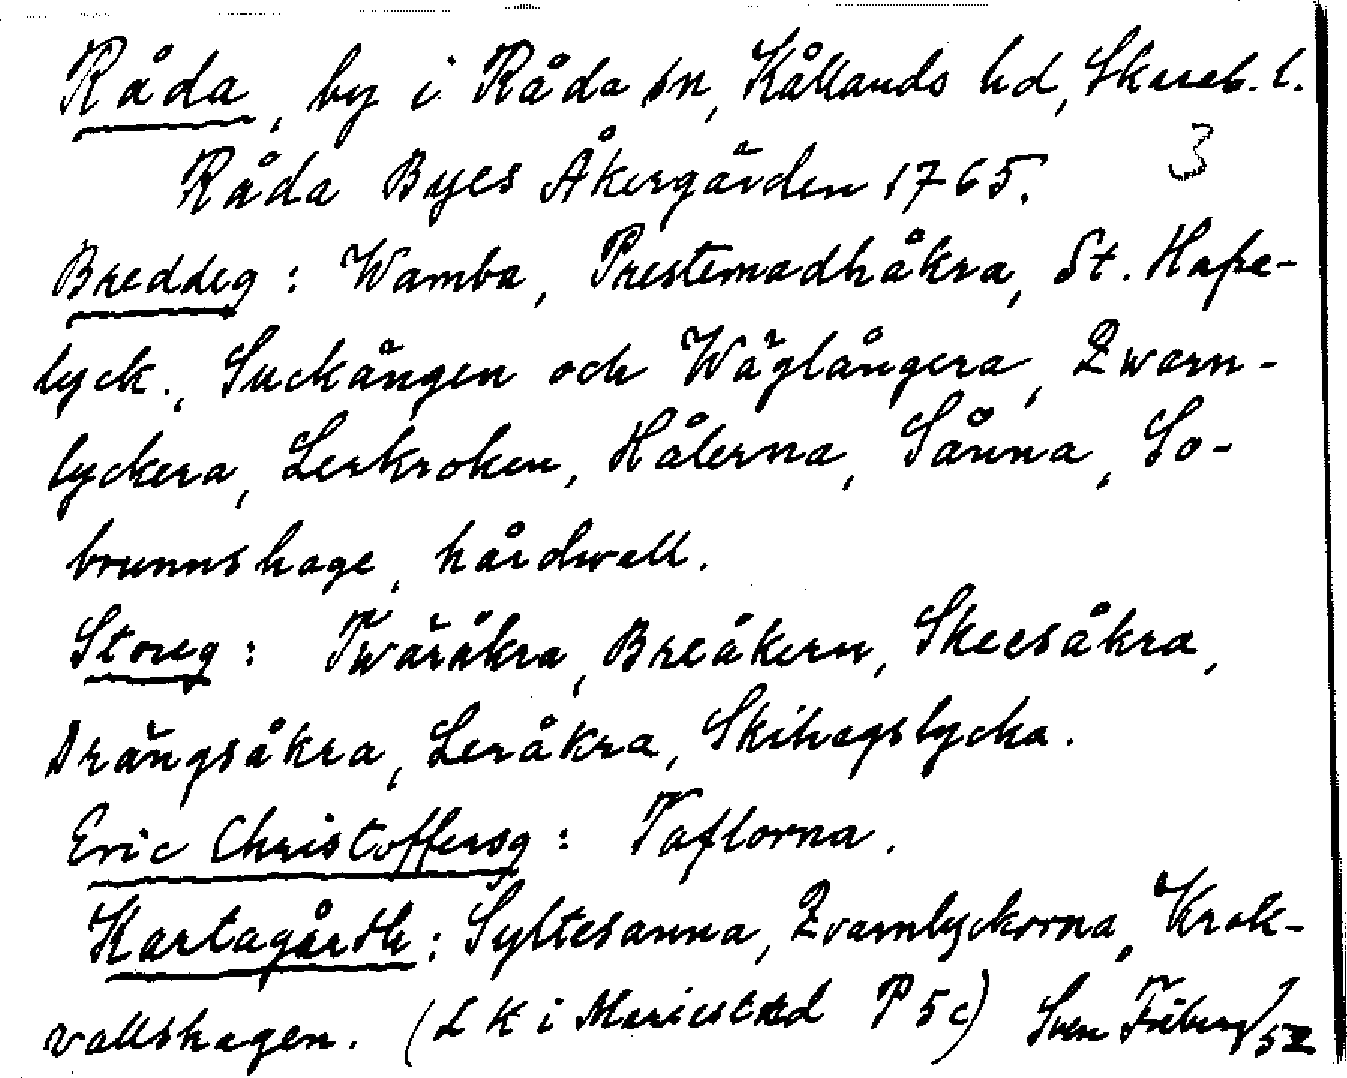 Råda, by i Råda sn, Kållands hd, Skarab. l.
3
Råda Byes Åkergärden 1765.
Breddeg: Wamba, Prestemadhåkra, St. Hafre-
lyck., Suckängen och Wäglångera, Zwarn-
lyckera, Lerkroken, Hålerna, Sånna, So-
brunnshage, hårdwall.
Storeg: Twäråkra, Breåkern, Skeesåkra,
Drängsåkra, Leråkra, Skihagslycka.
Eric Christoffersg: Taflorna.
Kartagårdh: Syltesanna, Zvarnlyckorna, Krok-
vallshagen. (L K i Mariestad P 5c) Sven Friberg